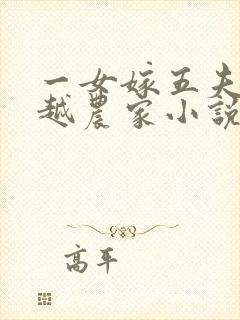 一女嫁五夫
越農家小說
高平